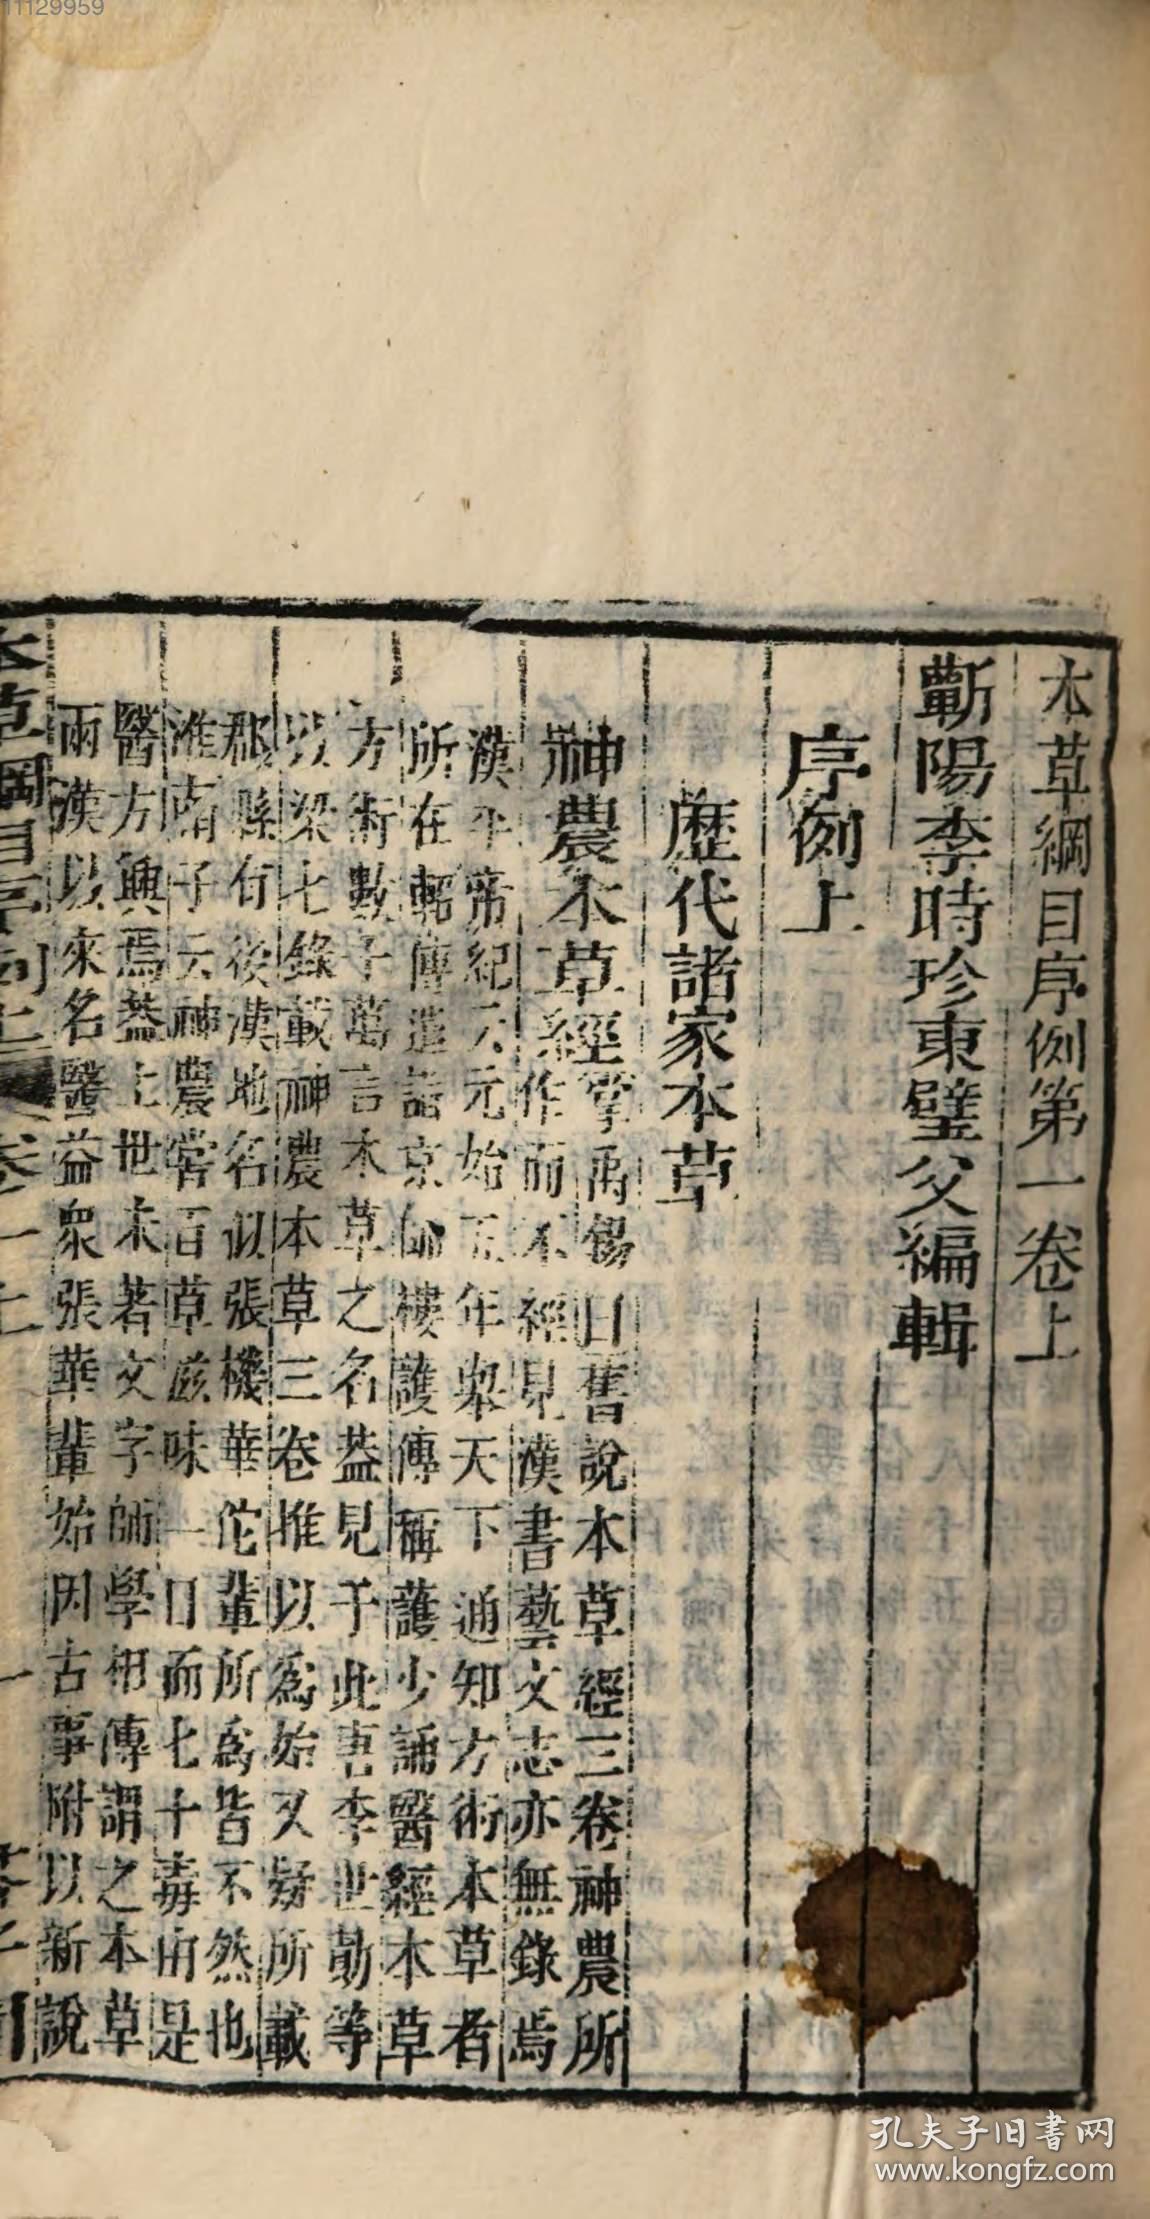 11129959
本草綱目序例第一卷上
蘄陽李時珍東璧父編輯
序例上
歷代諸家本草
神農本草經掌禹錫曰舊說本草經三卷神農所
作而不經見漢書藝文志亦無錄焉
漢平帝紀云元始五年舉天下通知方術本草者
所在軺傳遣詣京師樓護傳稱護少誦醫經本草
方術數十萬言本草之名葢見于此唐李世勣等
以梁七錄載神農本草三卷推以爲始又疑所載
郡縣有後漢地名似張機華佗輩所爲皆不然也
淮南子云神農嘗百草滋味一日而七十毒由是
醫方興焉葢上世未著文字師學相傳謂之本草
兩漢以來名醫益衆張華輩始因古事附以新說
本草綱目序例上 卷一上 一
孔夫子旧书网
www.kongfz.com